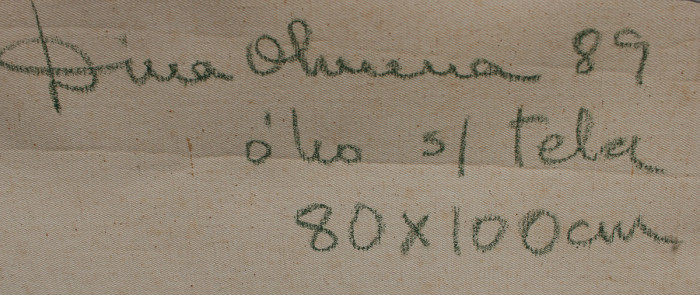 Dina Oliveira 89
óleo s/ tela
80x100cm